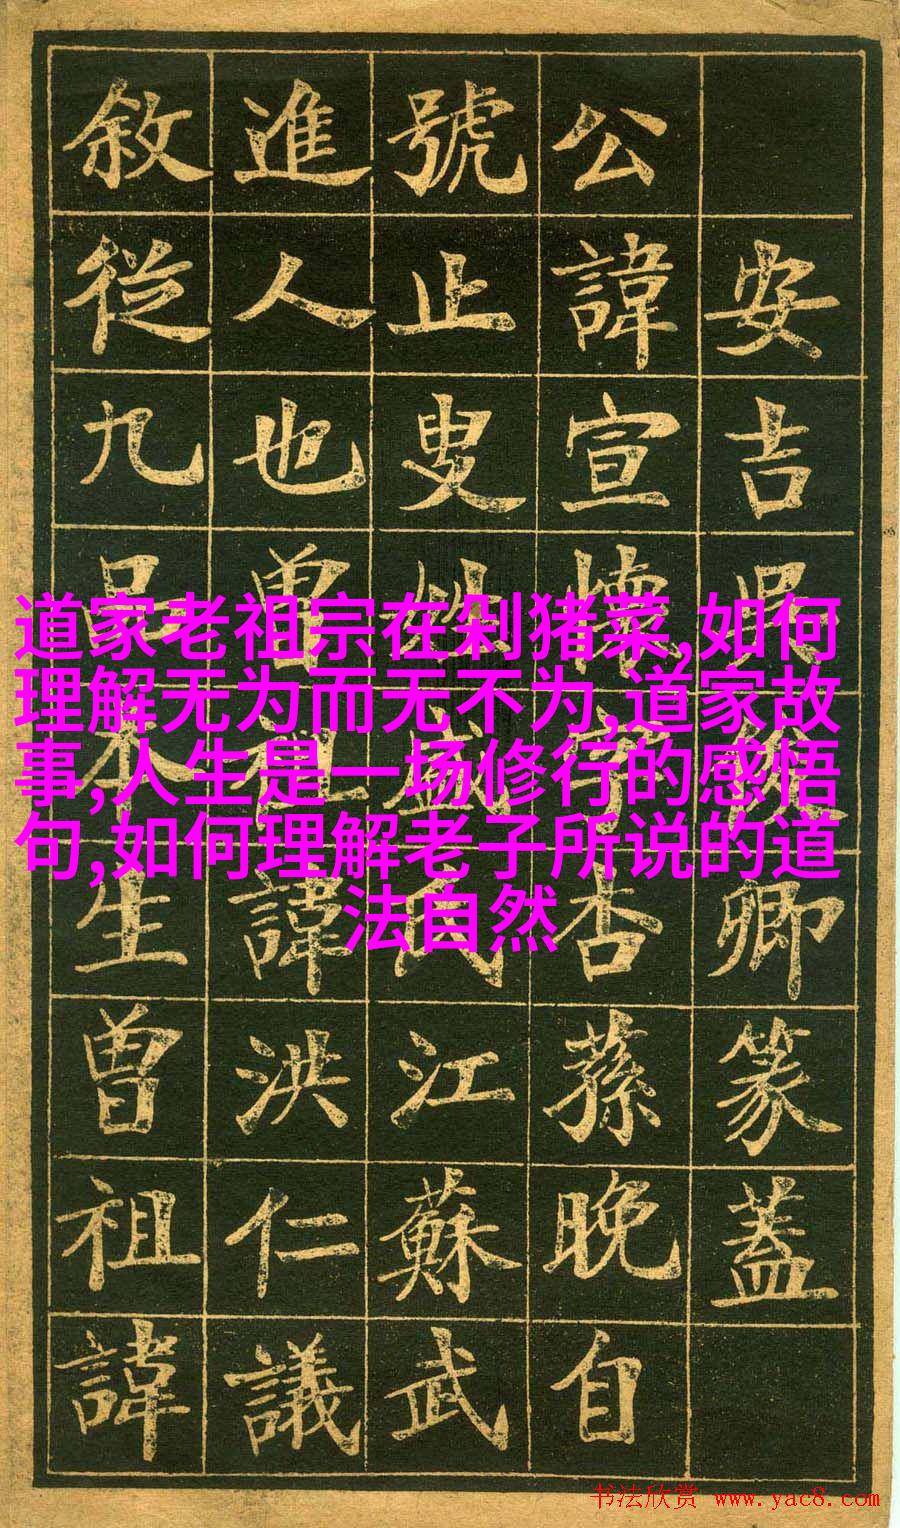 安吉吳俊卿篆蓋
公諱宣懷字杏蓀晚自
號止叟盛氏江蘇武
進人也曾祖諱洪仁議
敘從九品本生曾祖諱
道家老祖宗在剁猪菜,如何
理解无为而无不为,道家故
事,人生是一场修行的感悟
句,如何理解老子所说的道
法自然
书法欣赏 www.yac8.com